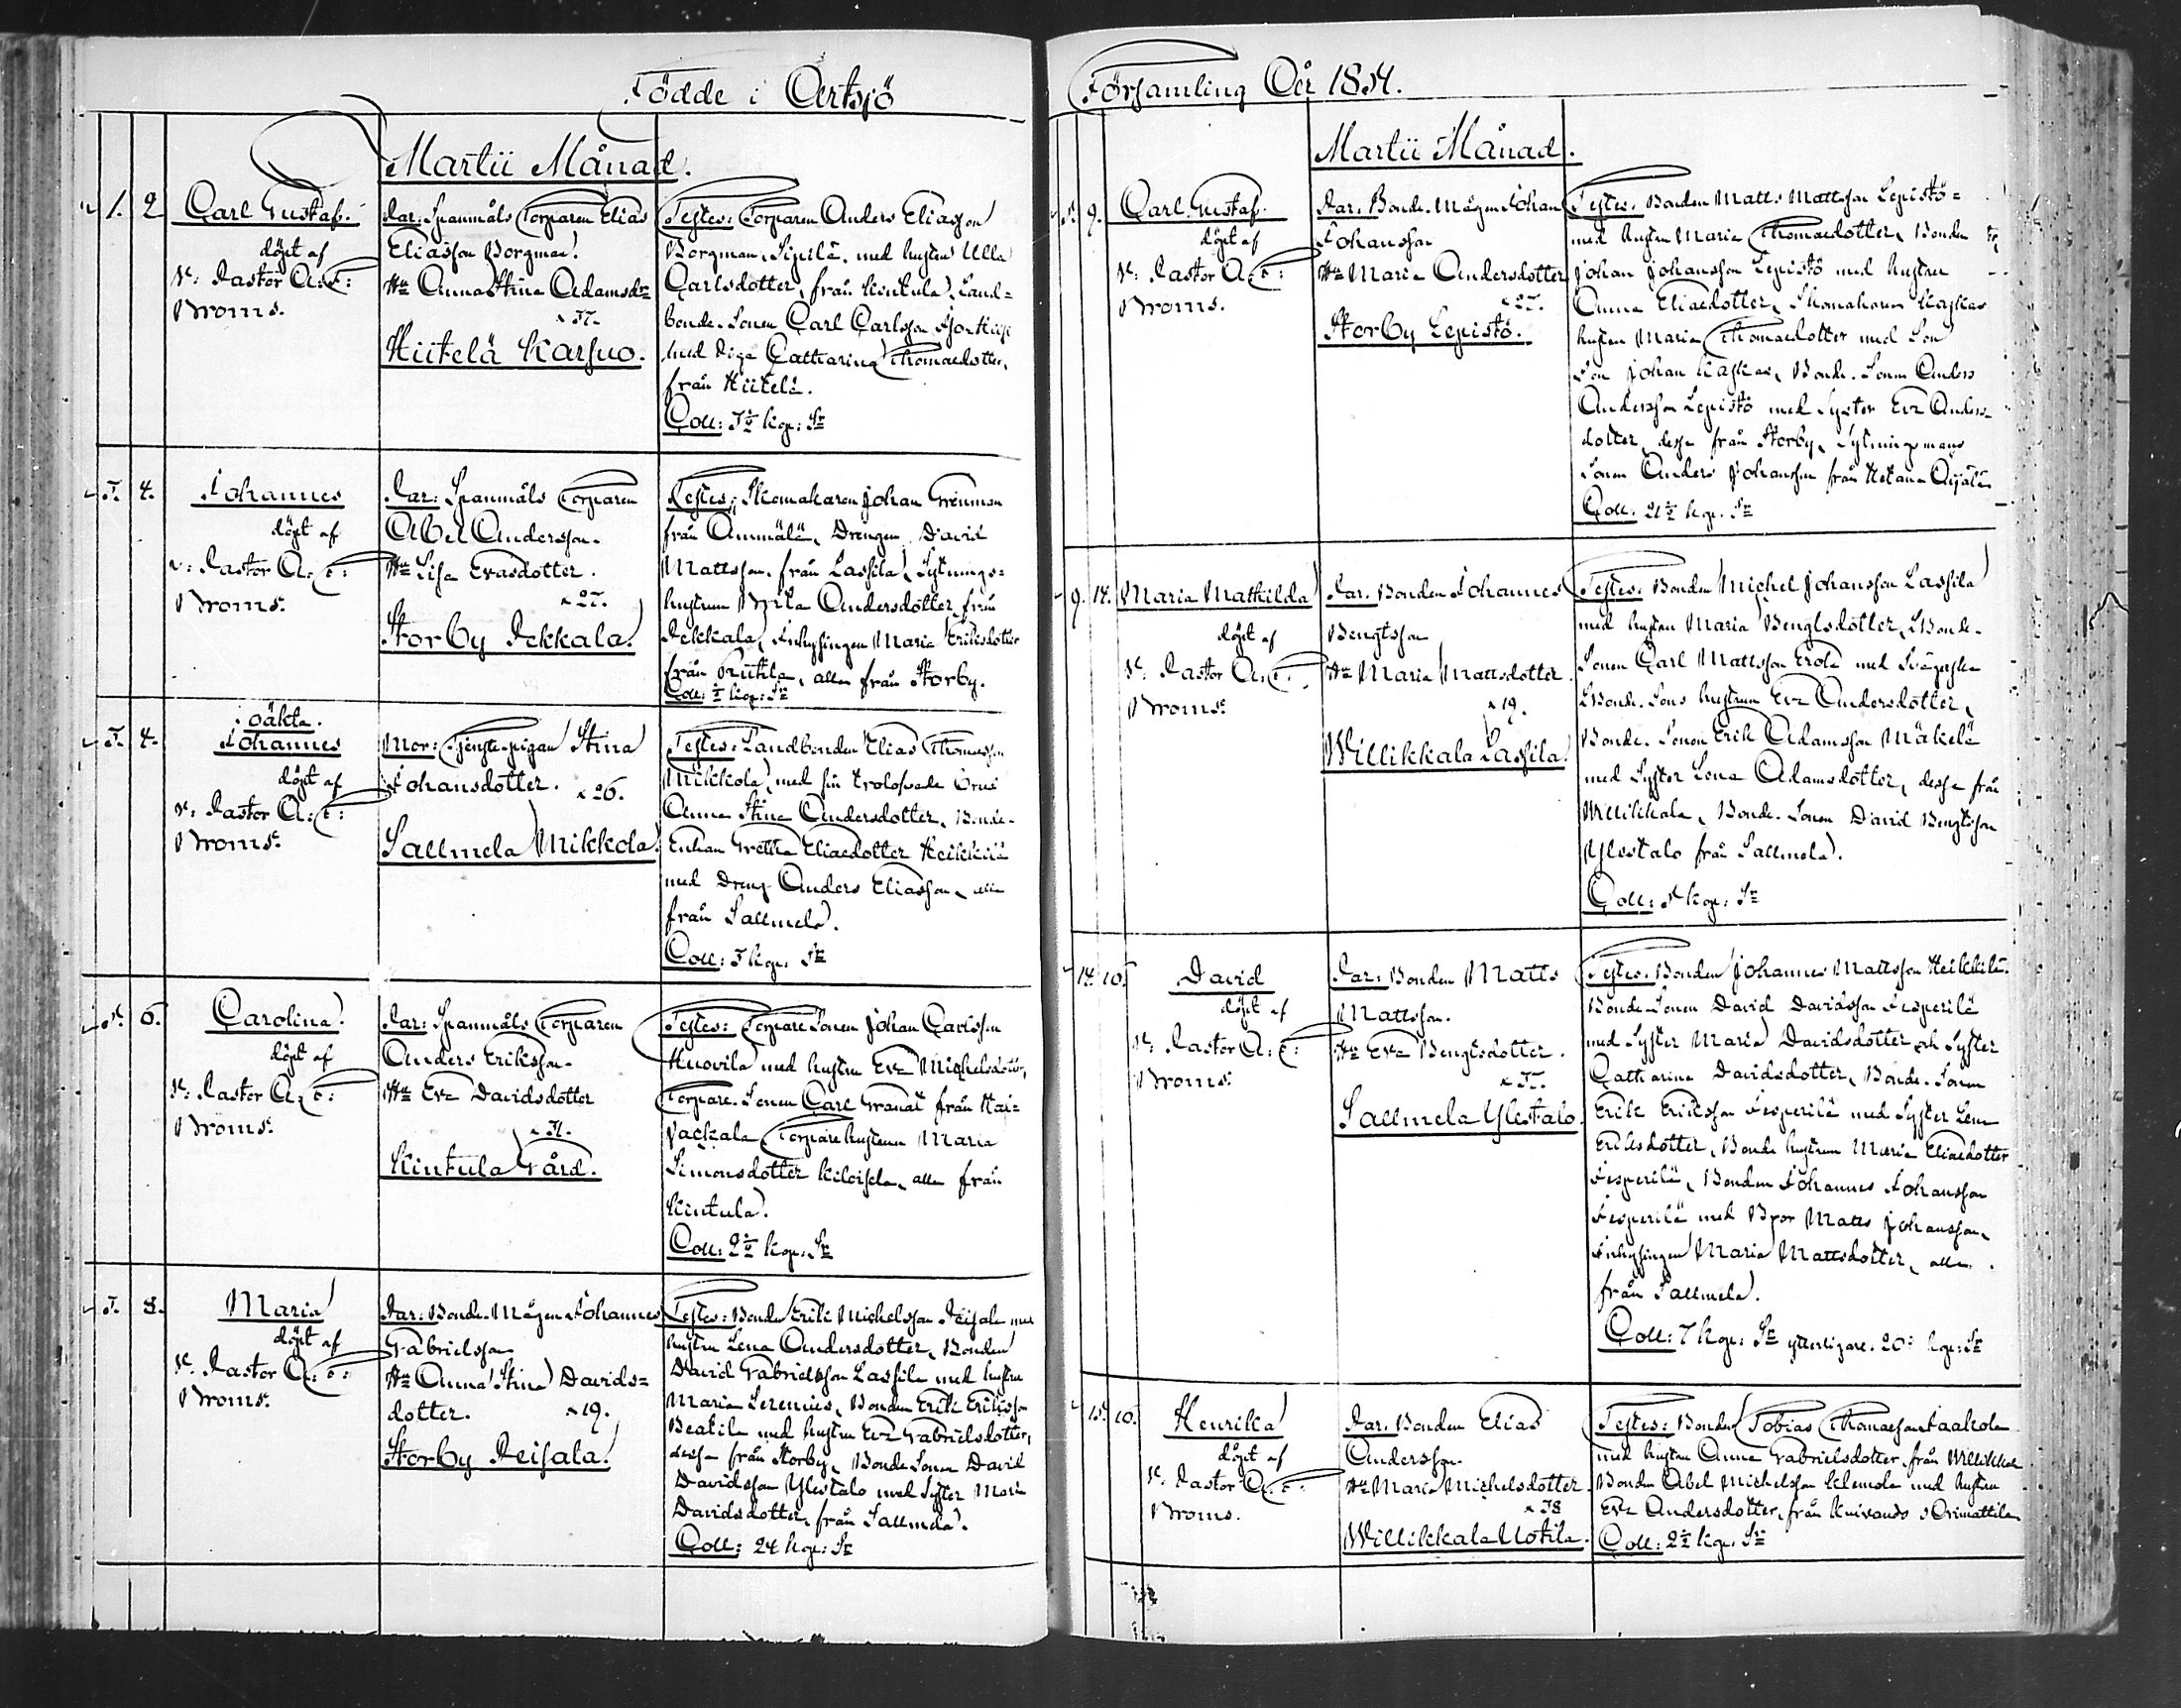 Födde i Artsjö
Martii Månad.
1. 2 Carl Gustaf.
döpt af
v: Pastor A: F:
Broms.
Far: Spanmåls Torparen Elias
Eliasson Borgman.
Hu Anna Stina Adamsd=
Hiitelä Karsuo.
Testes: Torparen Anders Eliasson
Borgman Sipilä, med hustru Ulla
Carlsdotter, från Kintula, Land=
bonde-Sonen Carl Carlsson
med Piga Catharina Thomaedotter,
från Hiitelä.
Coll: Kop: Sr
3. 4. Johannes
döpt af
v: Pastor A: F:
Broms.
Far: Spanmåls Torparen
Abel Andersson.
Hu Lisa Evasdotter.
Storby Pekkala.
Testes: Skomakaren Johan Grenman
från Ammälä, Drengen David
Mattsson, från Lassila, Sytnings=
hustrun Brita Andersdotter från
Pekkala, Inhysingen Maria Eriksdotter
från, alla från Storby.
Coll: Kop: Sr
3. 4. oäkta.
Johannes
döpt af
v: Pastor A: F:
Broms.
Mor: Tjenste-pigan Stina
Johansdotter. 26.
Sallmela Mikkola.
Testes: Landbonden Elias Thomasson
Mikkola, med sin trolofvade Brud
Anna Stina Andersdotter, Bonde-
Enkan Gretha Eliaedotter Heikkilä
med Dreng Anders Eliasson, alla
från Sallmela.
Coll: 3 kop: Sr
5. 6. Carolina.
döpt af
v: Pastor A: F:
Broms.
Far: Spanmåls Torparen
Anders Eriksson.
Hu Eva Davidsdotter
Kintula Gård.
Testes: Torpare Sonen Johan Carlsson
Huovila med hustru Eva Michelsdotter,
Torpare-Sonen Carl Granat från
Torpare hustrun Maria
Simonsdotter, alla från
Kintula.
Coll: 2½ kop: Sr
3. 8. Maria
döpt af
v: Pastor A: F:
Broms.
Far: Bonde-Mågen Johannes
Gabrielsson
Hu Anna Stina Davids=
dotter. 19.
Storby Peisala.
Testes: Bonden Erik Michelsson Peisala med
hustru Lena Andersdotter, Bonden
David Gabrielsson Lassila med hustru
Maria, Bonden Erik Eriksson
Beatila med hustru Eva Gabrielsdotter,
desse från Storby, Bonde Sonen David
Davidsson Ylestalo med Syster Maria
Davidsdotter, från Sallmela.
Coll: 24 kop: Sr
Församling År 1854.
Martii Månad.
5. 9. Carl Gustaf.
döpt af
v: Pastor A: F:
Broms.
Far: Bonde-Mågen Johan
Johansson
Hu Maria Andersdotter
Storby Lepistö.
Testes: Bonden Matts Mattsson Lepistö=
med hustru Maria Thomaedotter, Bonden
Johan Johansson Lepistö med hustru
Anna Eliaedotter, Skomakaren
hustru Maria Thomaedotter med Son
Son Johan, Bonde-Sonen Anders
Andersson Lepistö med Syster Eva Anders-
dotter, desse från Storby, Sytningsmans
Sonen Anders Johansson från
Coll: 21½ kop: Sr
9. 14. Maria Mathilda
döpt af
v: Pastor A: F:
Broms.
Far: Bonden Johannes
Bengtsson
Hu Maria Mattsdotter.
19.
Willikkala Lassila.
Testes: Bonden Michel Johansson Lassila
med hustru Maria Bengtsdotter, Bonde-
Sonen Carl Mattsson Erola med Svägerskan
Bonde-Sons hustrun Eva Andersdotter,
Bonde-Sonen Erik Adamsson Mäkelä
med Syster Lena Adamsdotter, desse från
Willikkala, Bonde-Sonen David Bengtsson
Ylestalo från Sallmela.
Coll: 5 kop: Sr
14. 16. David
döpt af
v: Pastor A: F:
Broms.
Far: Bonden Matts
Mattsson.
Hu Eva Bengtsdotter.
Sallmela Ylestalo.
Testes: Bonden Johannes Mattsson Heikkilä.
Bonde-Sonen David Davidsson Iesperilä
med Syster Maria Davidsdotter och Syster
Catharina Davidsdotter, Bonde-Sonen
Erik Eriksson Iesperilä med Syster Lena
Eriksdotter, Bonde hustrun Maria Eliaedotter
Iesperilä, Bonden Johannes Johansson
Iesperilä med Bror Matts Johansson,
Inhysingen Maria Mattsdotter, alla
från Sallmela.
Coll: 7 kop: Sr ytterligare. 20: kop: Sr
15. 16. Henrika
döpt af
v: Pastor A: F:
Broms.
Far: Bonden Elias
Andersson.
Hu Maria Michelsdotter
38
Willikkala Uotila.
Testes: Bonden Tobias Thomasson
med hustru Anna Gabrielsdotter, från Willikkala
Bonden Abel Michelsson Klemola med hustru
Eva Andersdotter, från Kuivando i Orimattila
Coll: 2½ kop: Sr